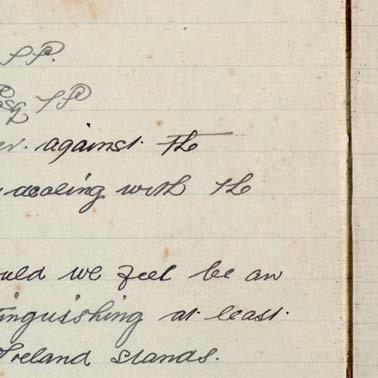 J.P.
Esq JP
against the
dealing with the
would we feel be an
tinguishing at least
Ireland stands.